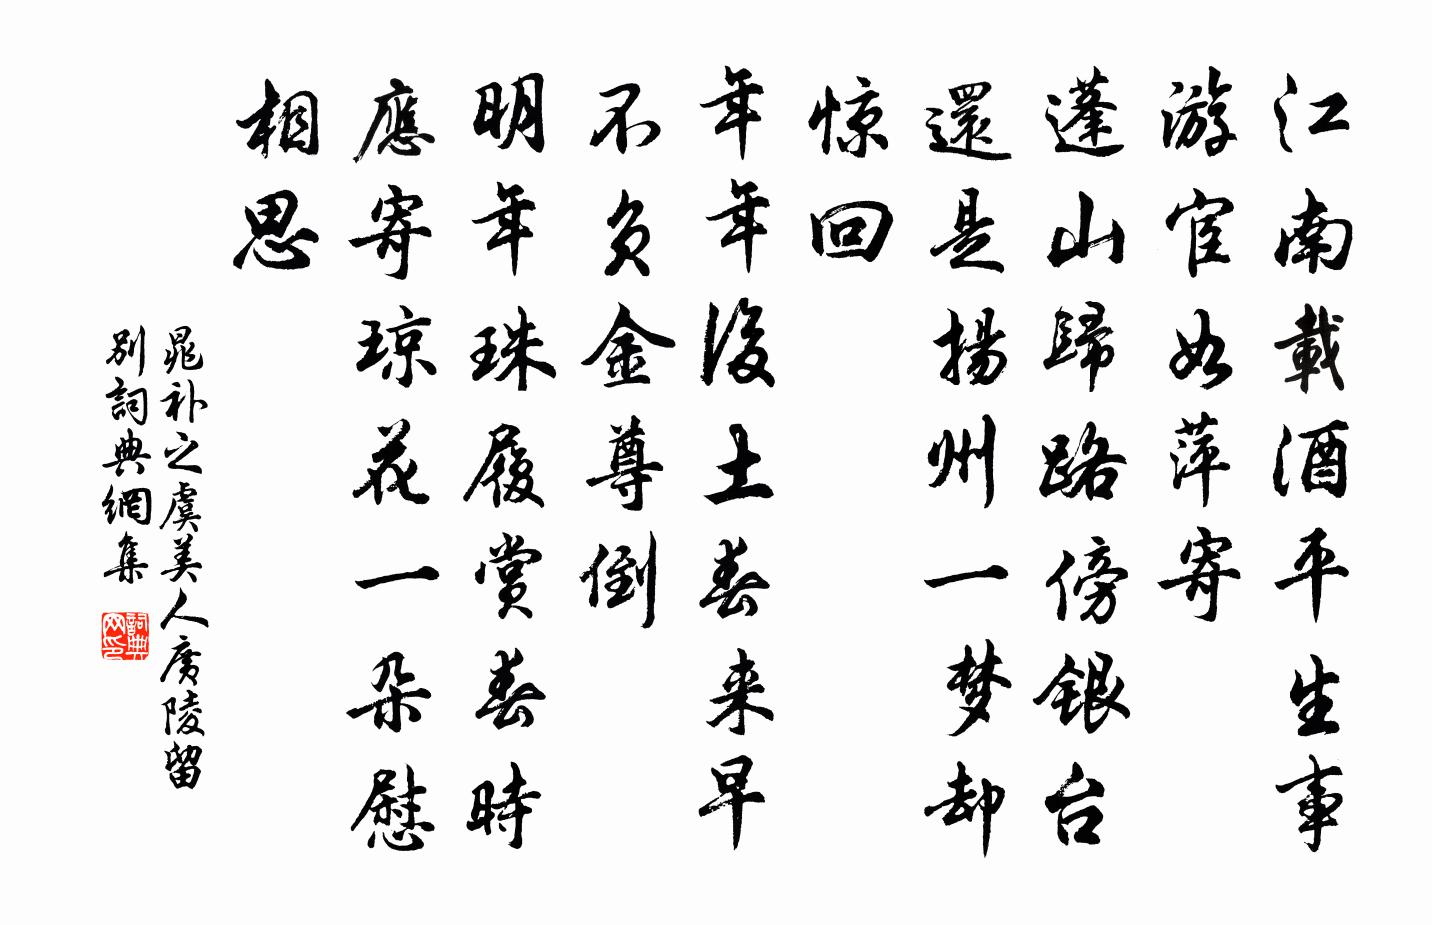 江南載酒平生事
游宦如萍寄
蓬山歸路傍銀台
還是揚州一梦却
惊回
年年後土春来早
不負金尊倒
明年珠履賞春時
應寄琼花一朵慰
相思
晁补之虞美人廣陵留
别詞典網集
詞典网印